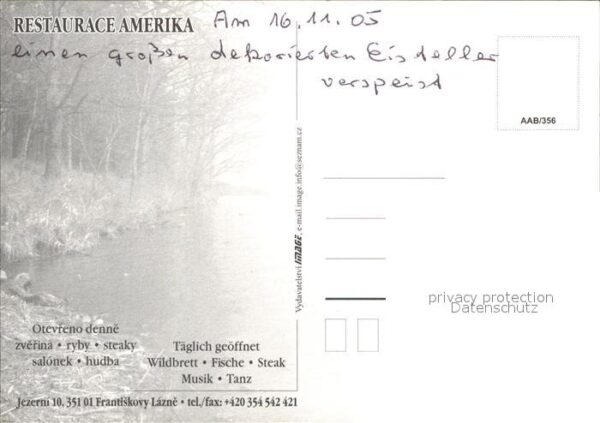 RESTAURACE AMERIKA Am 16.11.05
einen großen dekorierten Eisteller
verspeist
AAB/356
Vydavatelství IMAGE, e-mail.image.info@seznam.cz
privacy protection
Datenschutz
Otevřeno denně
zvěřina • ryby • steaky
salónek • hudba
Täglich geöffnet
Wildbrett • Fische • Steak
Musik • Tanz
Jezerní 10, 351 01 Františkovy Lázně • tel./fax: +420 354 542 421